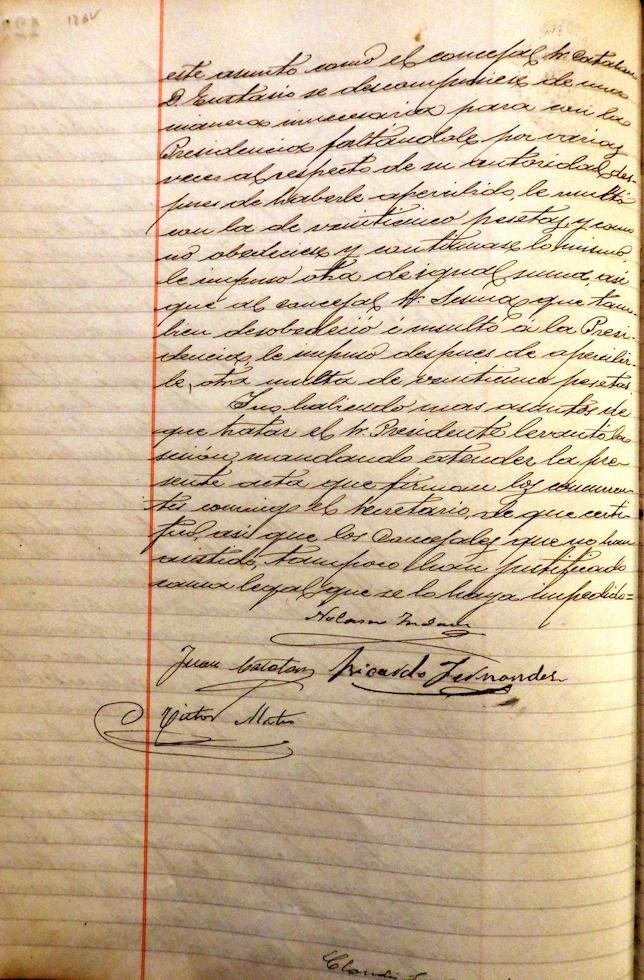 128V
este asunto como el concejal Sr. Catalan
D. Eustasio se descompusiese de una
manera innecesaria para con la
Presidencia faltandole por varias
veces al respeto de su autoridad, des-
pues de haberle apercibido, le multó
con la de veinticinco pesetas, y como
no obedeciese y continuase lo mismo,
le impuso otra de igual suma, asi
que al concejal Sr. que tam-
bien desobedeció é insultó á la Presi-
dencia, le impuso despues de apercibir-
le, otra multa de veinticinco pesetas
Y no habiendo mas asuntos de
que tratar el Sr. Presidente levantó la
sesion, mandando extender la pre-
sente acta que firman los concurren-
tes conmigo el Secretario, de que certi-
fico, asi que los Concejales que no han
asistido, tampoco han justificado
causa legal que se lo haya impedido=
Juan Catalan Ricardo Fernandez
Victor Mateo